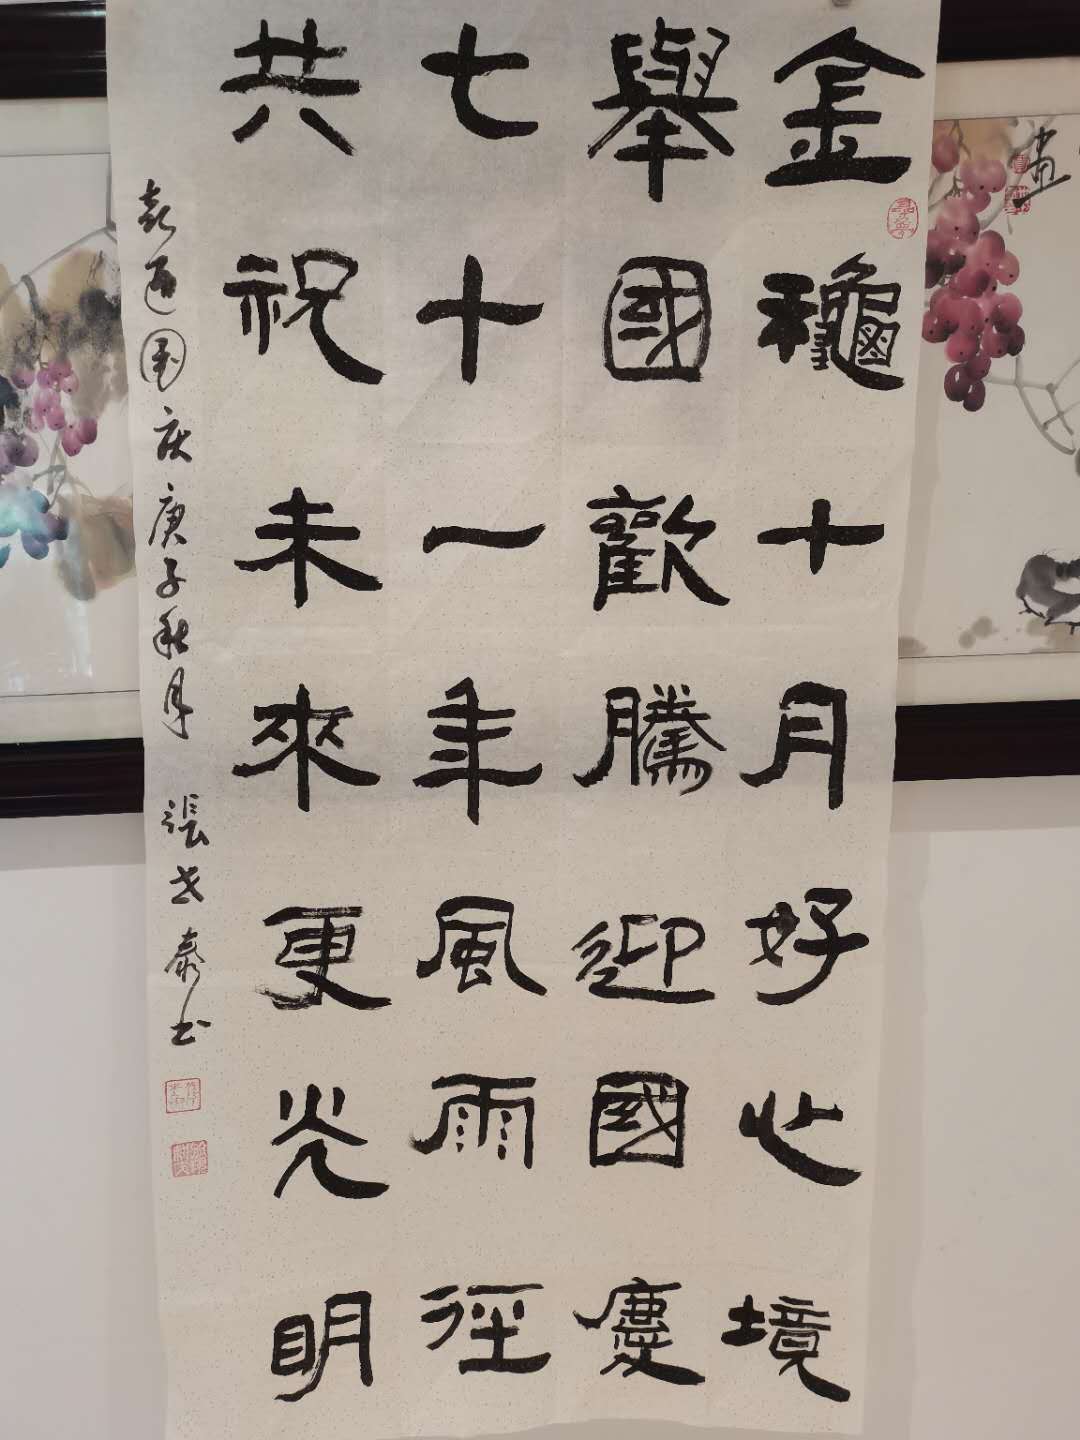 金龝十月好心境
舉國歡騰迎國慶
七十一年風雨徑
共祝未來更光明
喜迎国庆庚子秋月 張世泰书